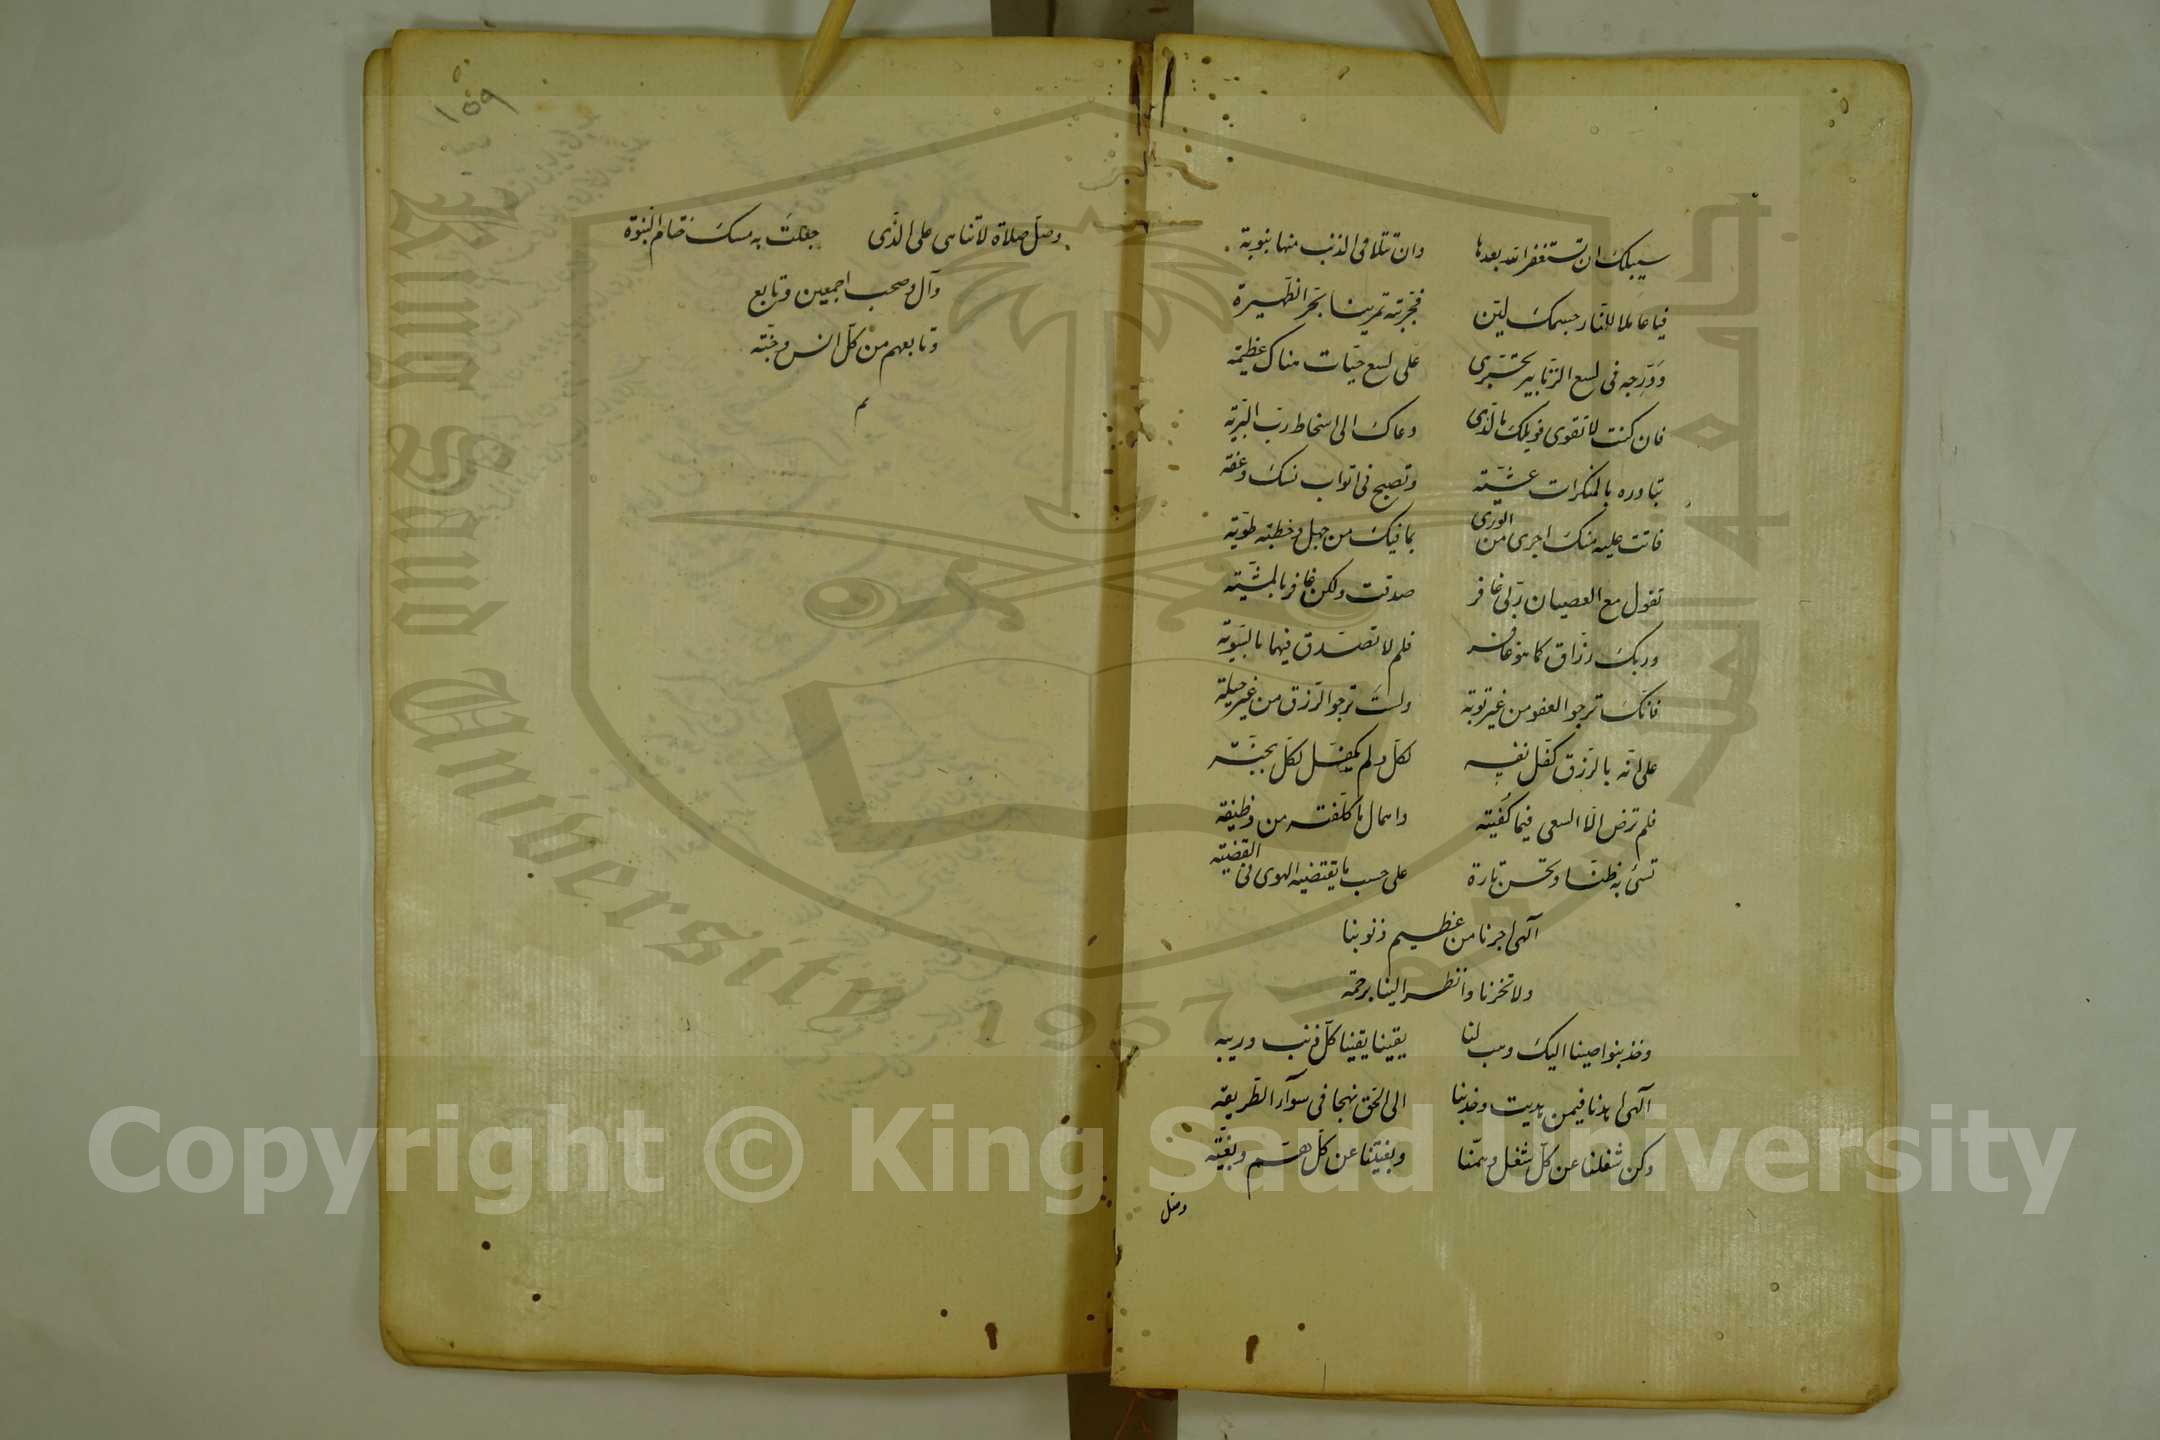 سبيلك ان تستغفر الله بعدها وان تتلافى الذنب منها بتوبة
فيا عاملا للنار جسمك لين فجربته تمرينا بحر الظهيرة
ودرجه في لسع الزنابير تجتري على لسع حيات هناك عظيمة
فان كنت لا تقوى فويلك ما الذي دعاك الى اسخاط رب البرية
تبارزه بالمنكرات عشية وتصبح في اثواب نسك وعفة
فانت عليه منك اجرى من الورى بما فيك من جهل وخبث طوية
تقول مع العصيان ربي غافر صدقت ولكن غافر بالمشية
وربك رزاق كما هو غافر فلم لا تصدق فيهما بالسوية
فانك ترجو العفو من غير توبة ولست ترجو الرزق من غير حيلة
على انه بالرزق كفل نفسه لكل ولم يكفل لكل بجنة
فلم ترض الا السعي فيما كفيته واهمال ما كلفته من وظيفة
تسئ به ظنا وتحسن تارة على حسب ما يقتضيه الهوى في القضية
آلهي اجرنا من عظيم ذنوبنا
ولا تخزنا وانظر الينا برحمة
وخذ بنواصينا اليك وهب لنا يقينا يقينا كل ذنب وريبة
آلهي اهدنا فيمن هديت وخذ بنا الى الحق نهجا في سوآء الطريقة
وكن شغلنا عن كل شغل وهمنا وبغيتنا عن كل هم وبغية
وصل
١٥٩
وصل صلاة لا تناهى على الذي جعلت به مسك ختام النبوة
وآل وصحب اجمعين وتابع
وتابعهم من كل انس وجنة
تم
King Saud University
1957
Copyright © King Saud University